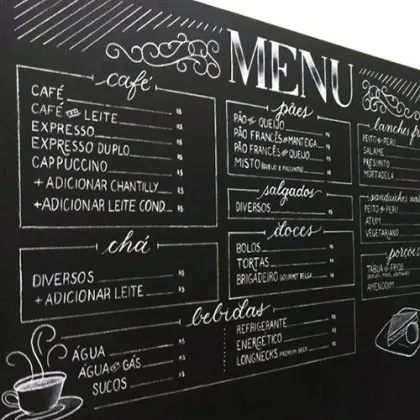 MENU
café
CAFÉ R$
CAFÉ COM LEITE R$
EXPRESSO R$
EXPRESSO DUPLO R$
CAPPUCCINO R$
+ ADICIONAR CHANTILLY R$
+ ADICIONAR LEITE COND. R$
chá
DIVERSOS R$
+ ADICIONAR LEITE R$
pães
PÃO DE QUEIJO
PÃO FRANCÊS COM MANTEIGA R$
PÃO FRANCÊS COM QUEIJO R$
MISTO (QUEIJO E PRESUNTO) R$
salgados
DIVERSOS R$
doces
BOLOS R$
TORTAS R$
BRIGADEIRO GOURMET BELGA R$
bebidas
ÁGUA R$
ÁGUA COM GÁS R$
SUCOS R$
REFRIGERANTE R$
ENERGÉTICO R$
LONGNECKS PREMIUM BEER R$
lanches
PEITO DE PERU
SALAME
PRESUNTO
MORTADELA
sanduíches
PEITO DE PERU
ATUM
VEGETARIANO
porções
TÁBUA DE FRIOS
AMENDOIM